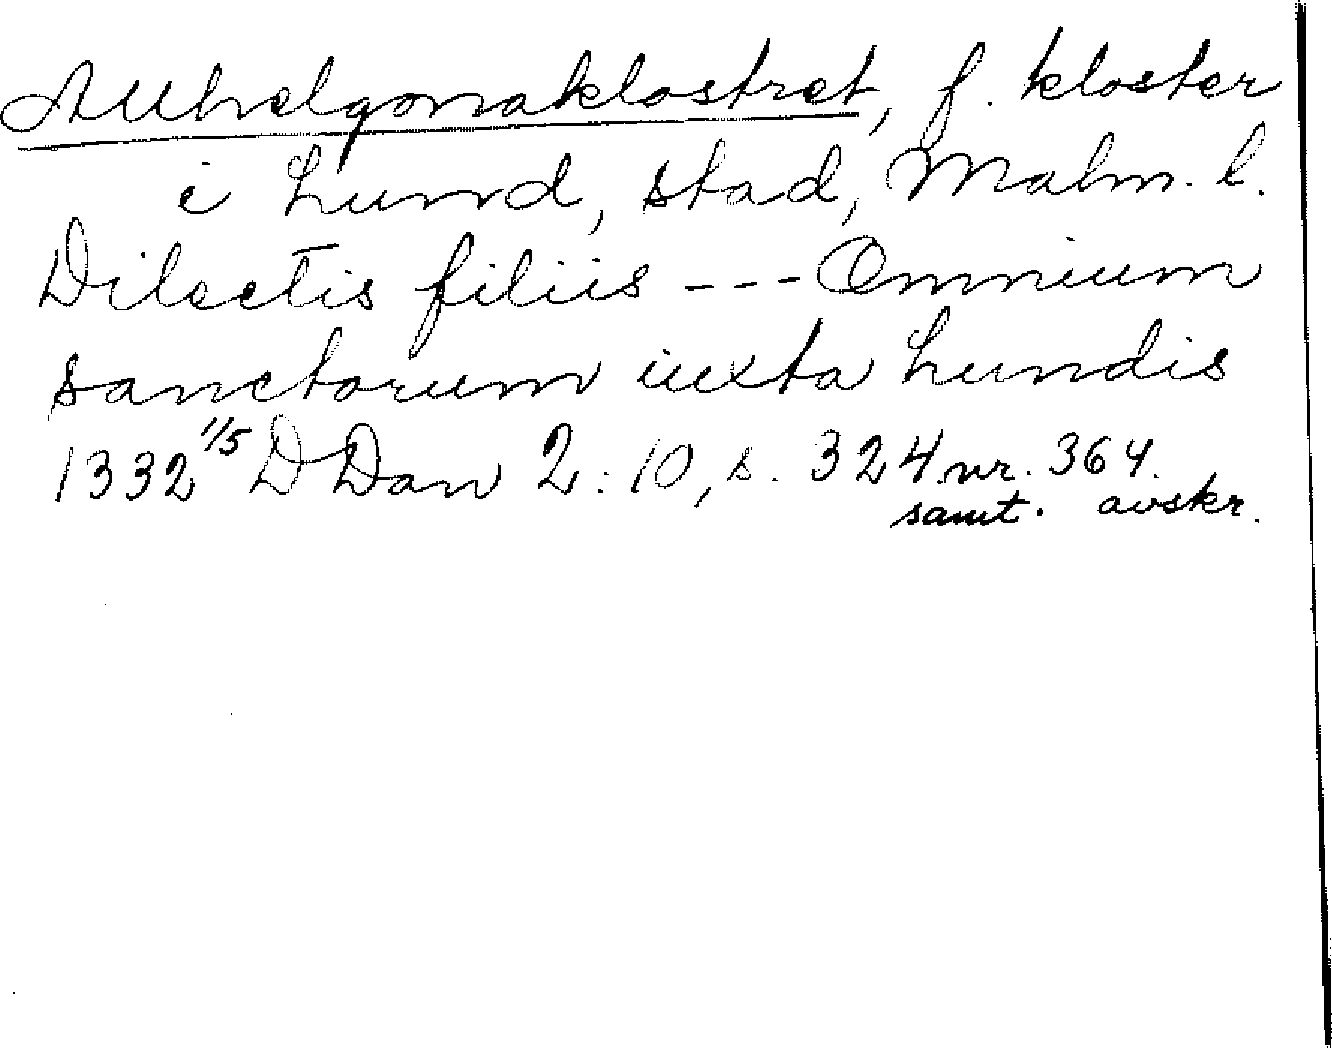 Allhelgonaklostret, f. kloster
i Lund, stad, Malm. l.
Dilectis filiis --- Omnium
sanctorum iuxta Lundis
1332 1/5 DDan 2:10, s. 324 nr. 364.
samt. avskr.